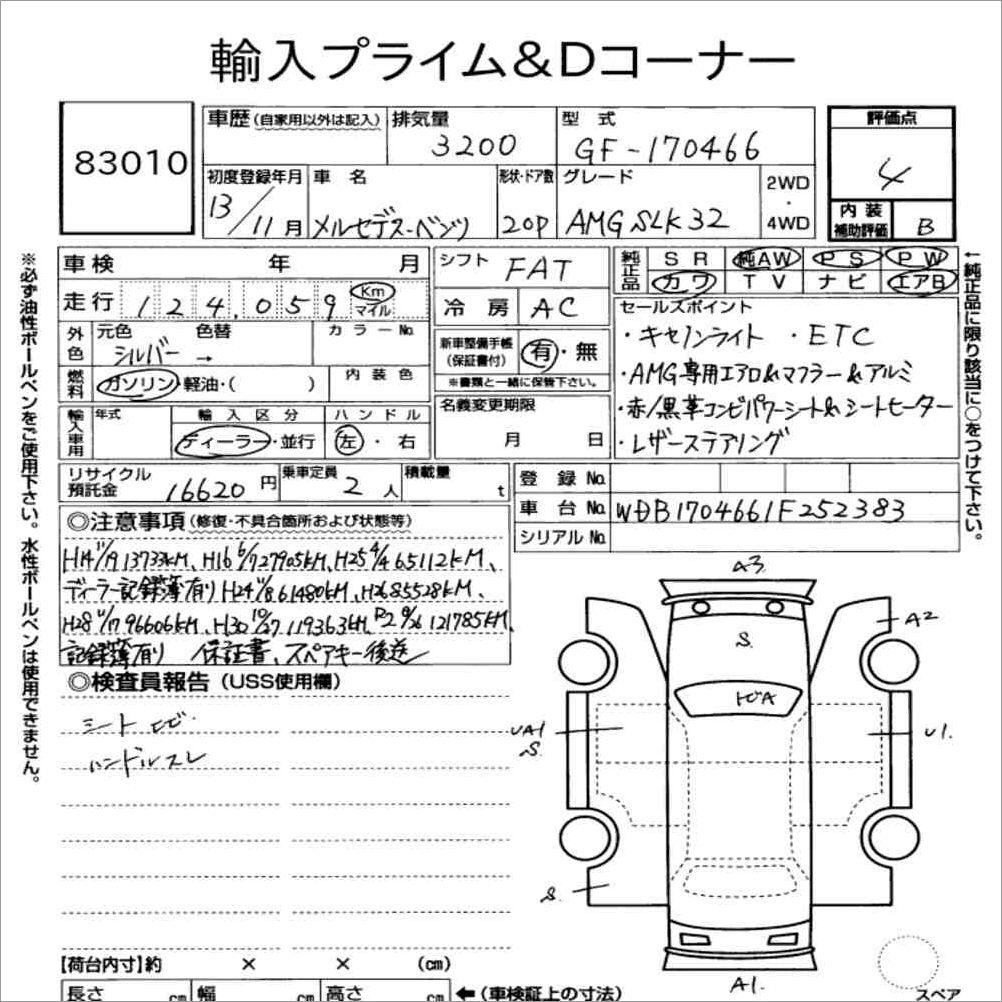 輸入プライム&Dコーナー
83010
車歴 (自家用以外は記入) 排気量 型 式 評価点
3200 GF-170466 4
初度登録年月 車 名 形状・ドア数 グレード 2WD・4WD 内装補助評価 B
13/11月 メルセデス-ベンツ 20P AMG SLK32
車 検 年 月 シフト FAT 純正品 SR 純AW PS PW
カワ TV ナビ エアB
走行 124,059 Km マイル 冷房 AC
外色 元色 色替 カラーNo.
シルバー →
新車整備手帳(保証書付) 有・無
※書類と一緒に保管下さい。
燃料 ガソリン・軽油・( ) 内装色
名義変更期限 月 日
輸入車用 年式 輸入区分 ハンドル
ディーラー・並行 左・右
セールスポイント
・キセノンライト ・ETC
・AMG専用エアロ&マフラー&アルミ
・赤/黒革コンビパワーシート&シートヒーター
・レザーステアリング
リサイクル預託金 16620円 乗車定員 2人 積載量 t
登録No.
車台No. WDB1704661F252383
シリアルNo.
◎注意事項 (修復・不具合箇所および状態等)
H14 11/9 13733KM、H16 6/7 27905KM、H25 4/4 65112KM、
ディーラー記録簿有り H24 11/8 61480KM、H26 85528KM、
H28 11/7 96606KM、H30 10/27 119363KM、R2 9/26 121785KM、
記録簿有り 保証書、スペアキー後送
◎検査員報告 (USS使用欄)
シート ヒビ
ハンドルスレ
A3
A2
S.
トビA
UA1
S.
U1.
S.
A1.
スペア
【荷台内寸】約 × × (cm)
長さ cm 幅 cm 高さ cm ←(車検証上の寸法)
※必ず油性ボールペンをご使用下さい。水性ボールペンは使用できません。
←純正品に限り該当に○をつけて下さい。